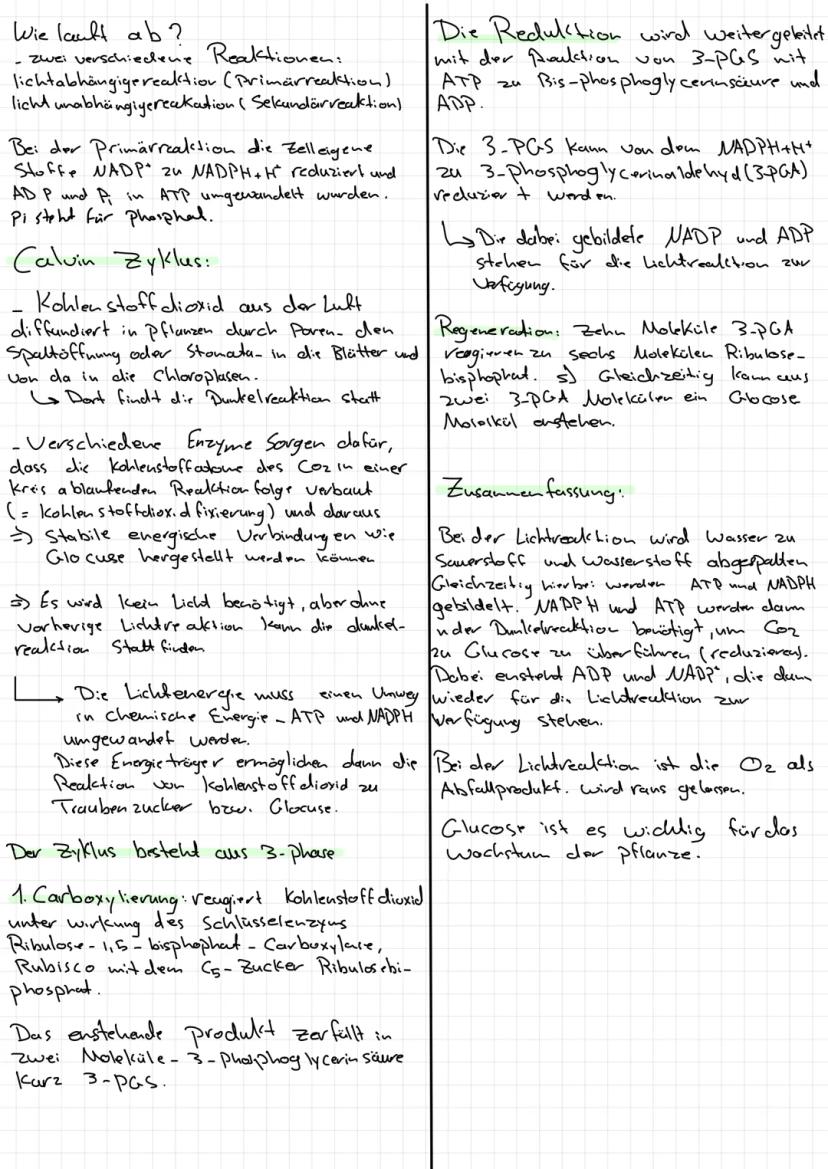 Wie lauft ab?
- zwei verschiedene Reaktionen:
lichtabhängigereaktion (Primärreaktion)
licht unabhängigereakation (Sekundärreaktion)
Bei der Primärreaktion die zelleigene
Stoffe NADP⁺ zu NADPH+H⁺ reduziert und
ADP und Pi in ATP umgewandelt wurden.
Pi steht für Phosphat.
Calvin Zyklus:
- Kohlenstoffdioxid aus der Luft
diffundiert in Pflanzen durch Poren- den
Spaltöffnung oder Stomata- in die Blätter und
von da in die Chloroplasen.
↳ Dort findt die Dunkelreaktion statt
- Verschiedene Enzyme Sorgen dafür,
dass die Kohlenstoffatome des CO2 in einer
Kreis ablaufenden Reaktion folge verbaut
(= Kohlenstoffdioxid fixierung) und daraus
=> Stabile energische Verbindungen wie
Glocuse hergestellt werden können
=> Es wird kein Licht benötigt, aber ohne
vorherige Lichtreaktion kann die dunkel-
reaktion Statt finden
↳ Die Lichtenergie muss einen Umweg
in chemische Energie - ATP und NADPH
umgewandet werden.
Diese Energieträger ermöglichen dann die
Reaktion von Kohlenstoffdioxid zu
Traubenzucker bzw. Glocuse.
Der Zyklus besteht aus 3-phase
1. Carboxylierung: reagiert Kohlenstoffdioxid
unter wirkung des Schlüsselenzyms
Ribulose-1,5-bisphophat-Carboxylase,
Rubisco mit dem C5-Zucker Ribulosebi-
phosphat.
Das enstehende produkt zerfällt in
zwei Moleküle - 3-Phosphoglycerinsäure
kurz 3-PGS.
Die Reduktion wird weitergeleitet
mit der Reaktion von 3-PGS mit
ATP zu Bis-phosphoglycerinsäure und
ADP.
Die 3-PGS kann von dem NADPH+H⁺
zu 3-phosphoglycerinaldehyd (3-PGA)
reduziert werden.
↳ Die dabei gebildete NADP und ADP
stehen für die Lichtreaktion zur
Verfügung.
Regeneration: Zehn Moleküle 3-PGA
reagieren zu sechs Molekülen Ribulose-
bisphophat. => Gleichzeitig kann aus
zwei 3-PGA Molekülen ein Glocose
Molekül enstehen.
Zusammenfassung:
Bei der Lichtreaktion wird Wasser zu
Sauerstoff und Wasserstoff abgespalten
Gleichzeitig hierbei werden ATP und NADPH
gebildelt. NADPH und ATP werden dann
in der Dunkelreaktion benötigt, um CO2
zu Glucose zu überführen (reduzieren).
Dabei enstehd ADP und NADP⁺, die dann
wieder für die Lichtreaktion zur
Verfügung stehen.
Bei der Lichtreaktion ist die O2 als
Abfallprodukt. wird raus gelassen.
Glucose ist es wichtig für das
Wachstum der pflanze.